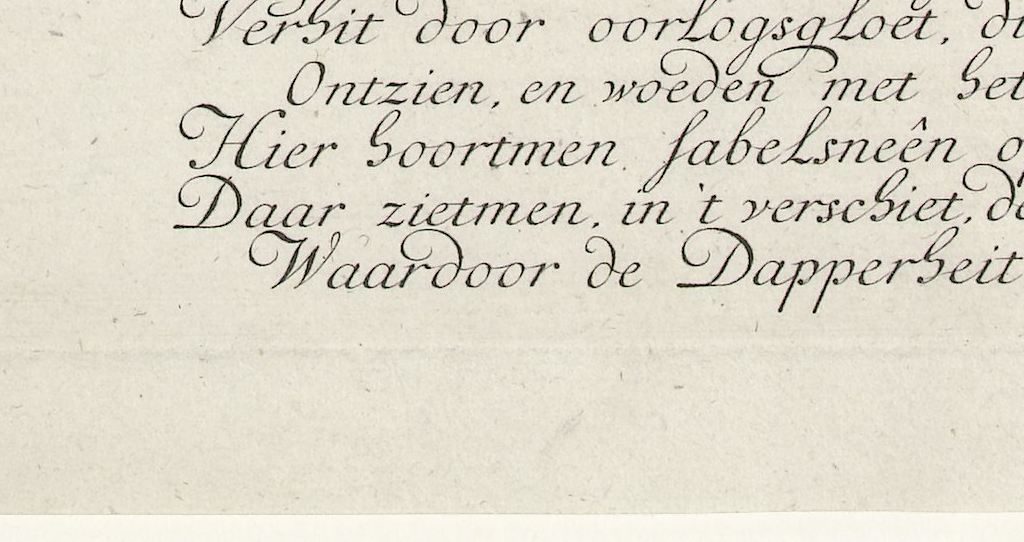 Verhit door oorlogsgloet,
Ontzien, en woeden met het
Hier hoortmen sabelsneên
Daar zietmen, in 't verschiet,
Waardoor de Dapperheit